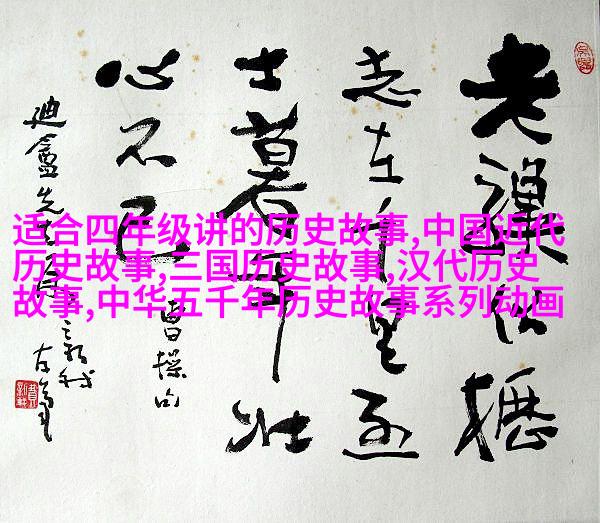 适合四年级讲的历史故事,中国近代
历史故事,三国历史故事,汉代历史
故事,中华五千年历史故事系列动画
老驥伏櫪
志在千里烈
士暮年壮
心不已
曹操句
迪盦先生